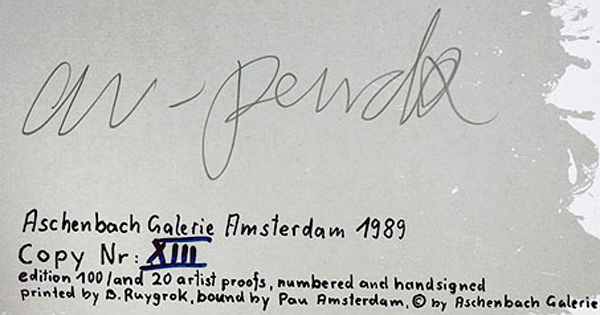 ar-penck
Aschenbach Galerie Amsterdam 1989
Copy Nr: XIII
edition 100/and 20 artist proofs, numbered and handsigned
printed by B.Ruygrok, bound by Pau Amsterdam, © by Aschenbach Galerie